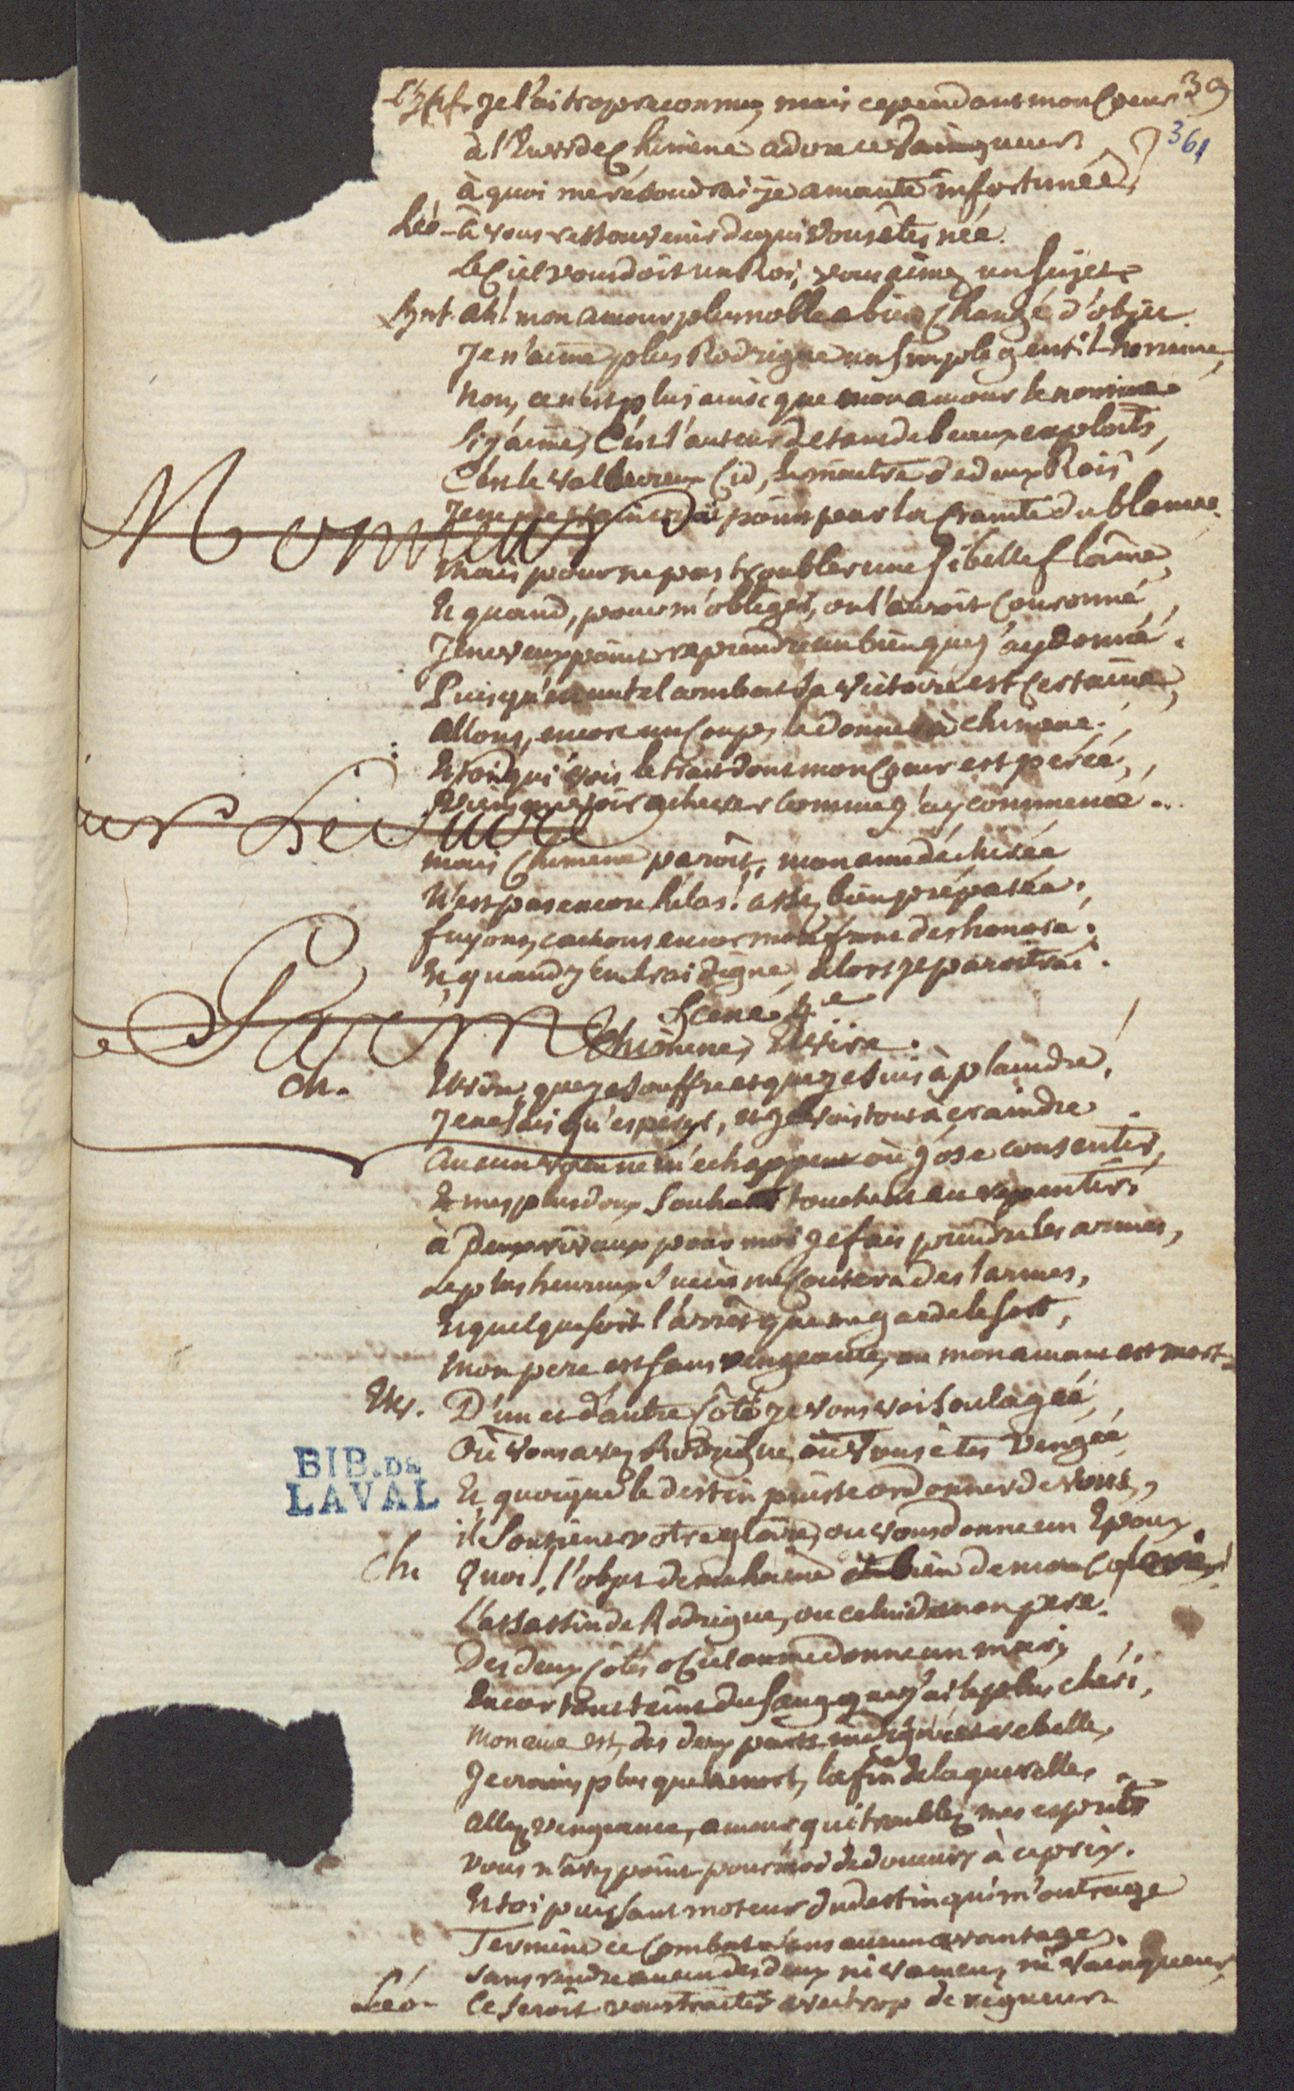 39
361
L'Inf. Je l'ai trop reconnu, mais cependant mon Coeur
à l'Envi de Chimene adore ce Vainqueur
à quoi me resoudrai-je amante infortunée,
Léo - à vous ressouvenir de qui vous êtes née.
Le Ciel vous doit un Roi, vous aimez un Sujet
Inf. ah! mon amour plus noble a bien Changé d'objet.
Je n'aime plus Rodrigue un simple gentil-homme,
Non, ce n'est plus ainsi que mon amour le nomme
Si j'aime, C'est l'auteur de tant de beaux exploits,
C'est le valeureux Cid, le maitre de deux Rois
Monsieur
Je me vaincrai point pour la Crainte du blame.
Mais pour ne pas troubler une si belle flâme,
Et quand, pour m'obliger, on l'auroit Couronné,
Je ne veux point reprendre un bien que j'ay donné.
Puisqu'en un tel combat sa victoire est Certaine,
allons, encore un Coup, le donner à Chimene.
Et toi qui vois le trait dont mon Coeur est percé,
Viens me voir achever comme j'ay commencé...
eur Le Juge
mais Chimene paroît, mon ame déchirée
N'est pas encore hélas! assez bien préparée,
fuyons, cachons encor mon deshonoré.
Et quand j'en serai digne, alors je paroîtrai.
Scene 4e
Chimene, Elvire.
Ch. Elvire, que je souffre et que je suis à plaindre,
Je ne sais qu'esperer, et je vois tout à craindre
Aucun voeu ne m'échappe où j'ose consentir,
Et mes plus doux Souhaits touchent au repentir,
à deux rivaux pour moi je fais prendre les armes,
Le plus heureux succès me coutera des larmes,
Et quelque soit l'arrêt que me garde le sort,
Mon pere est sans vengeance, ou mon amant est mort.
Elv. D'un et d'autre Côté je vous vois soulagée,
Où vous avez Rodrigue, où vous êtes Vengée
Et quoique le destin puisse ordonner de vous,
il Soutient votre gloire, ou vous donne un Epoux.
BIB. DE
LAVAL
Ch Quoi, l'objet de ma haine bien de mon
L'assassin de Rodrigue, ou celui de mon pere.
Des deux Côtés on me donne un mari,
Encor tout teint du Sang que j'ai le plus chéri,
Mon ame est, des deux parts rebelle,
Je crains plus que la mort, la fin de la querelle,
allez vengeance, amour qui troublez mes esprits
Vous n'avez point pour moi de douceurs à ce prix.
Et toi puissant moteur du destin qui m'outrage
Termine ce Combat sans aucun avantage,
Sans rendre aucun des deux ni vaincu, ni vainqueur,
Léo - Ce seroit vous traiter avec trop de rigueur